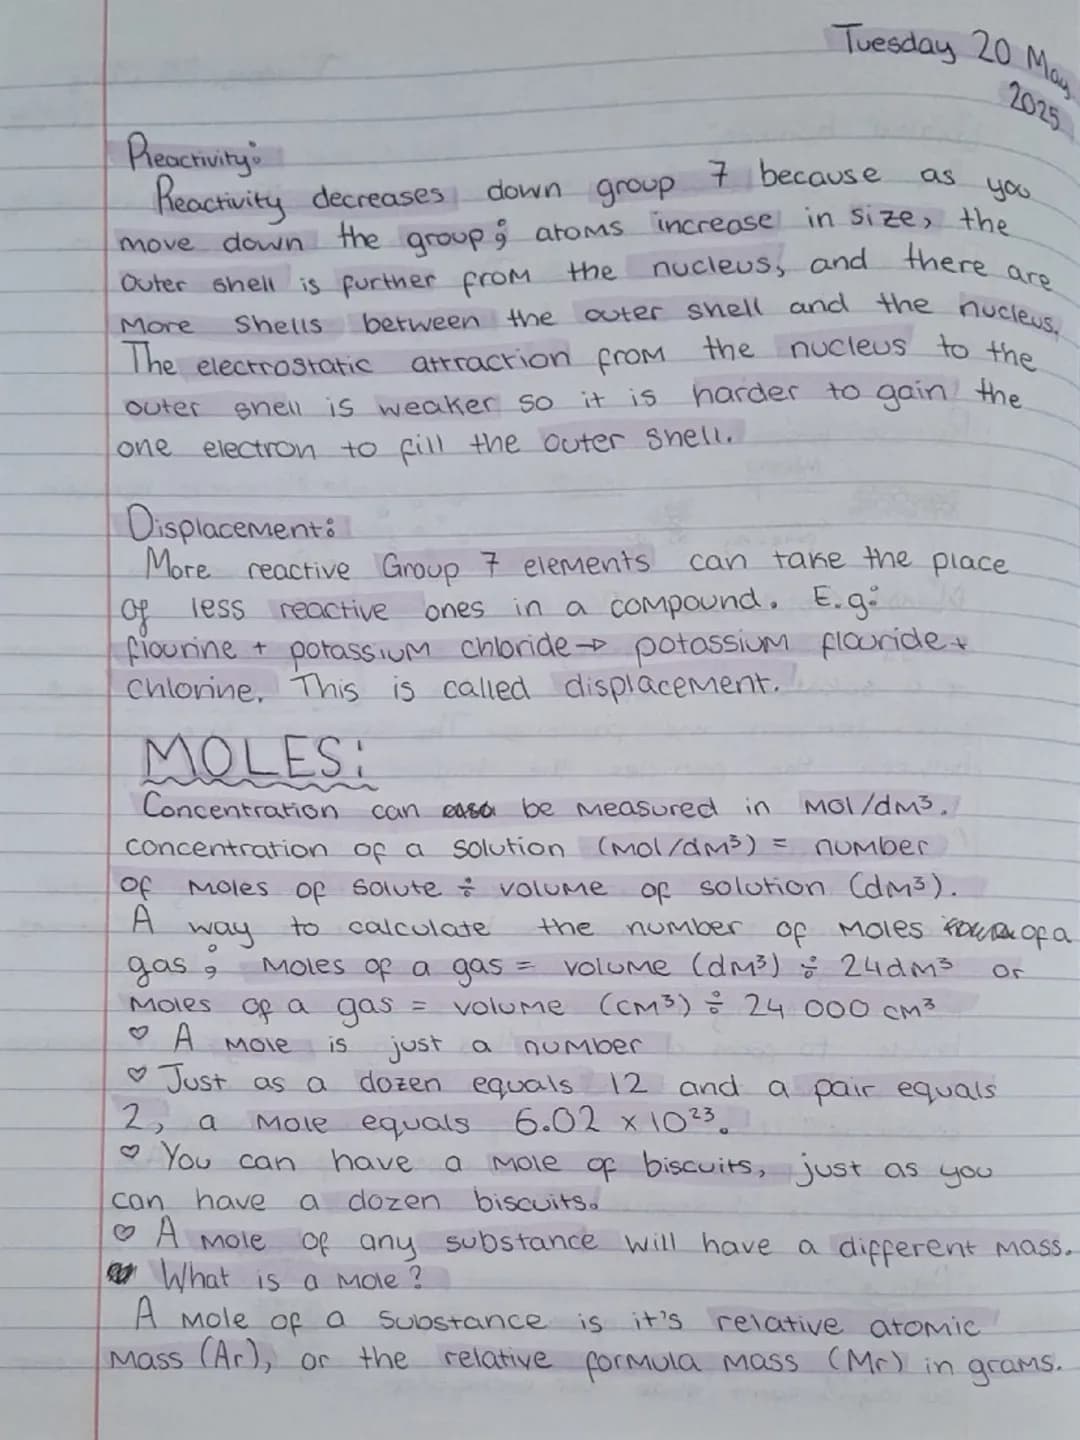 Tuesday 20 May
2025
Reactivity:
Reactivity decreases down group 7 because as you
move down the group; atoms increase in size, the
outer shell is further from the nucleus, and there are
more shells between the outer shell and the nucleus.
The electrostatic attraction from the nucleus to the
outer shell is weaker so it is harder to gain the
one electron to fill the outer shell.
Displacement:
More reactive Group 7 elements can take the place
of less reactive ones in a compound. E.g:
flourine + potassium chloride → potassium flouride +
chlorine. This is called displacement.
MOLES:
Concentration can be measured in mol/dm³.
concentration of a solution (mol/dm³) = number
of moles of solute ÷ volume of solution (dm³).
A way to calculate the number of moles of a
gas; moles of a gas = volume (dm³) ÷ 24dm³ or
moles of a gas = volume (cm³) ÷ 24 000 cm³
♡ A mole is just a number
♡ Just as a dozen equals 12 and a pair equals
2, a mole equals 6.02 x 10²³.
♡ You can have a mole of biscuits, just as you
can have a dozen biscuits.
♡ A mole of any substance will have a different mass.
What is a mole?
A mole of a substance is it's relative atomic
mass (Ar), or the relative formula mass (Mr) in grams.